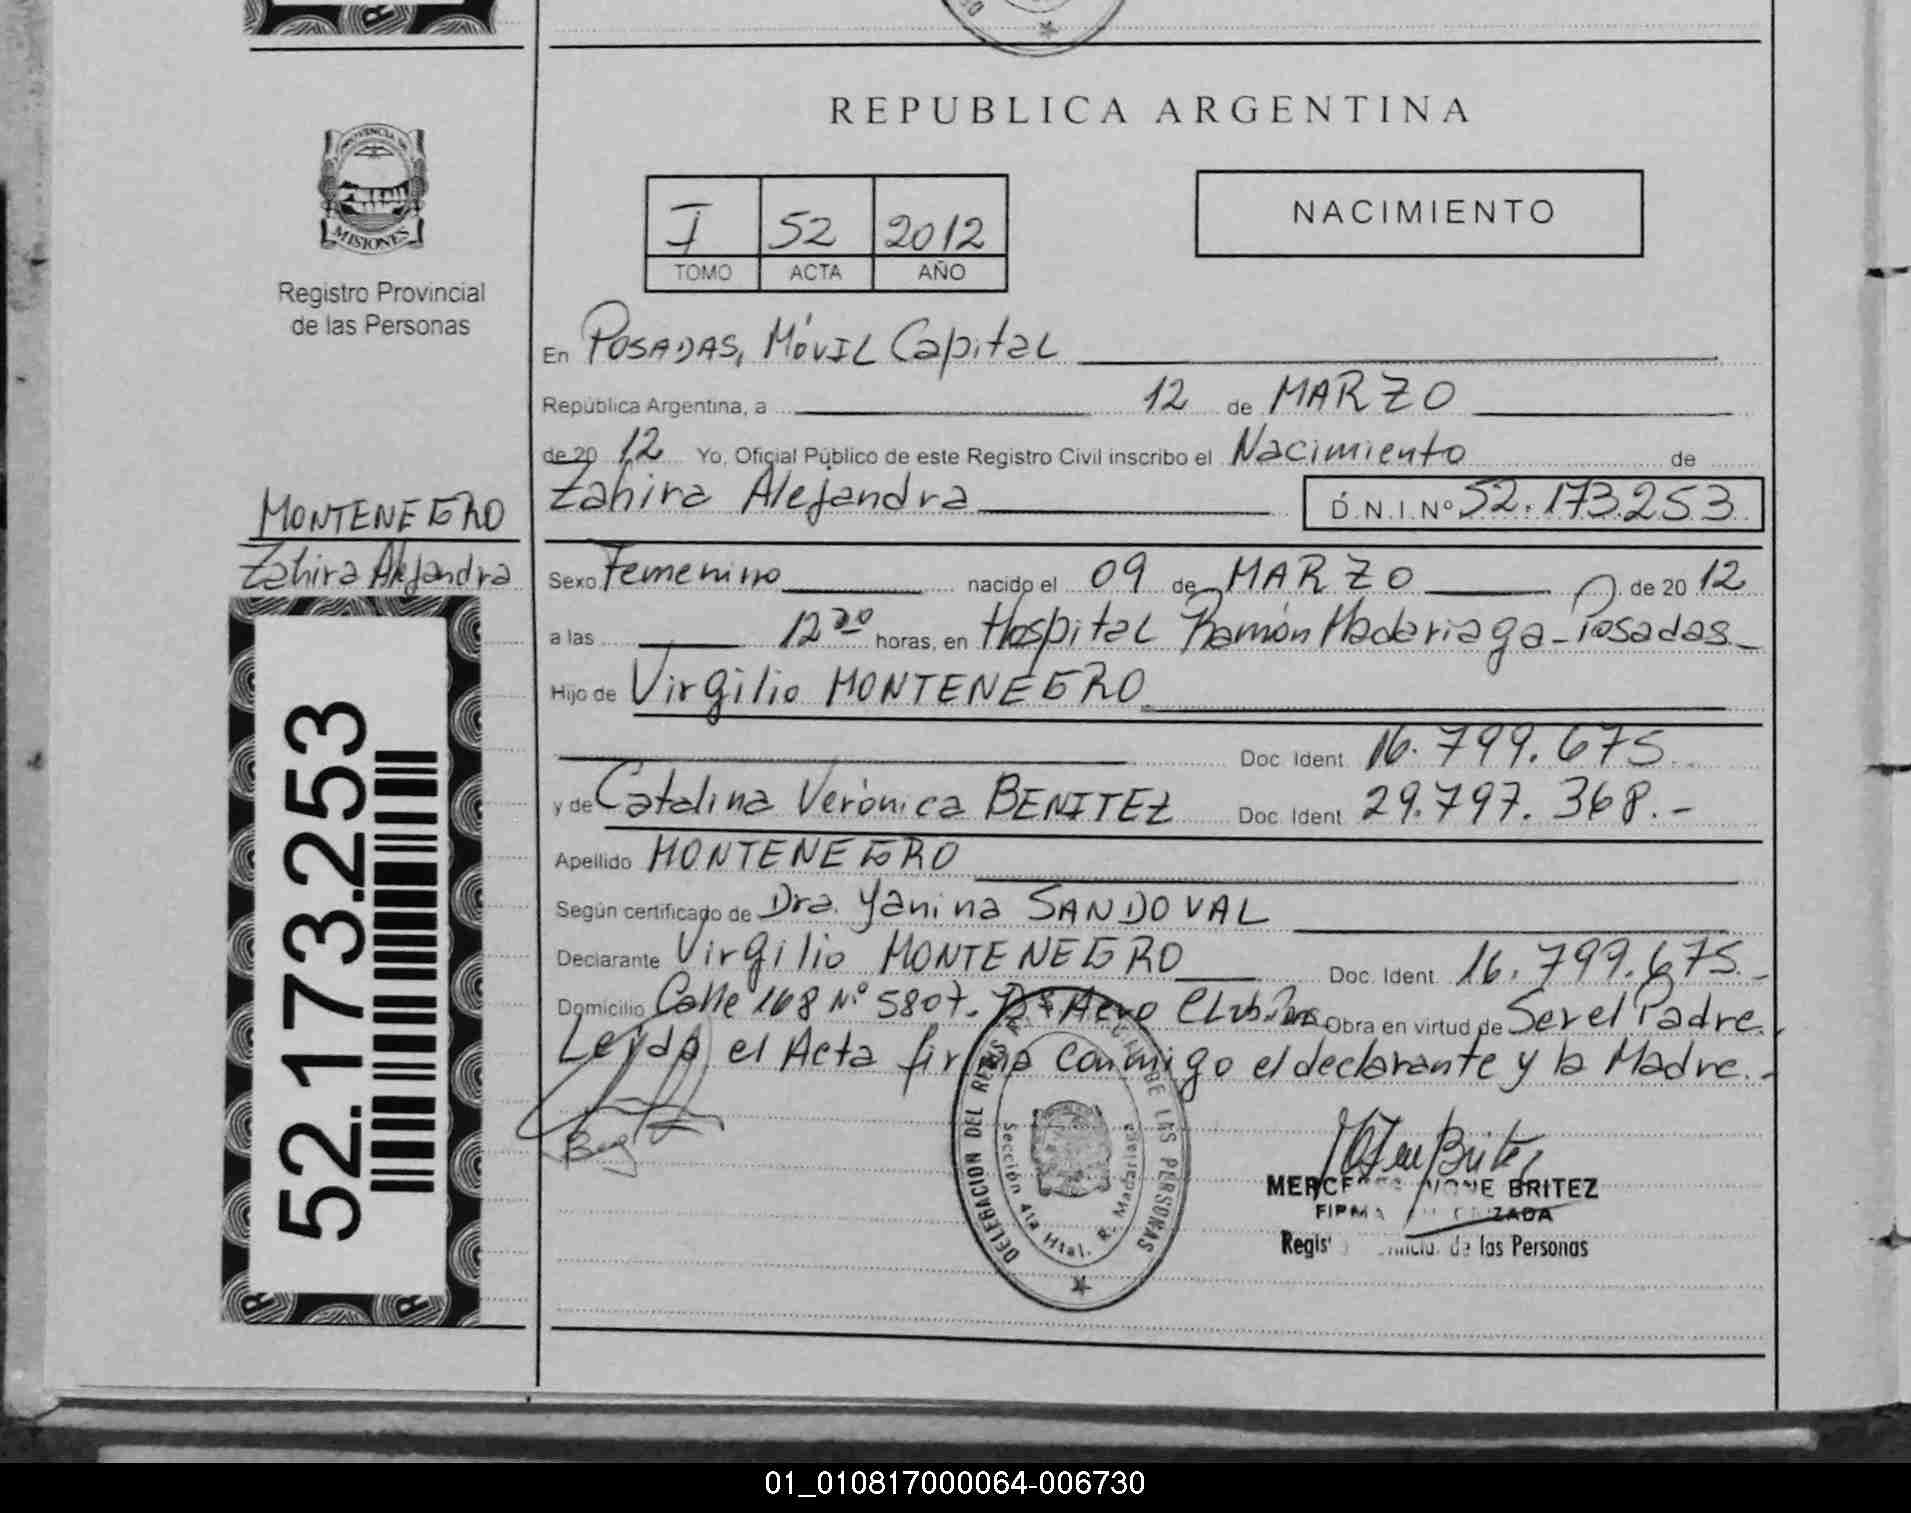 REPUBLICA ARGENTINA
PROVINCIA DE
MISIONES
Registro Provincial
de las Personas
I 52 2012
TOMO ACTA AÑO
NACIMIENTO
En POSADAS, MÓVIL Capital
República Argentina, a 12 de MARZO
de 20 12 Yo, Oficial Público de este Registro Civil inscribo el Nacimiento de
Zahira Alejandra D.N.I.Nº 52.173.253
MONTENEGRO
Zahira Alejandra
Sexo Femenino nacido el 09 de MARZO de 20 12
a las 12 horas, en Hospital Ramón Madariaga - Posadas
Hijo de Virgilio MONTENEGRO
Doc. Ident. 16.799.675
y de Catalina Verónica BENITEZ Doc. Ident. 29.797.368.-
Apellido MONTENEGRO
Según certificado de Dra. Yanina SANDOVAL
Declarante Virgilio MONTENEGRO Doc. Ident. 16.799.675.-
Domicilio Calle 168 Nº 5807. Aero Club Obra en virtud de Ser el Padre.
Leída el Acta firma conmigo el declarante y la Madre.-
52.173.253
DELEGACION DEL DE LAS PERSONAS
Sección 4ta Htal. R. Madariaga
MERCEDES BRITEZ
FIRMA
de las Personas
01_010817000064-006730